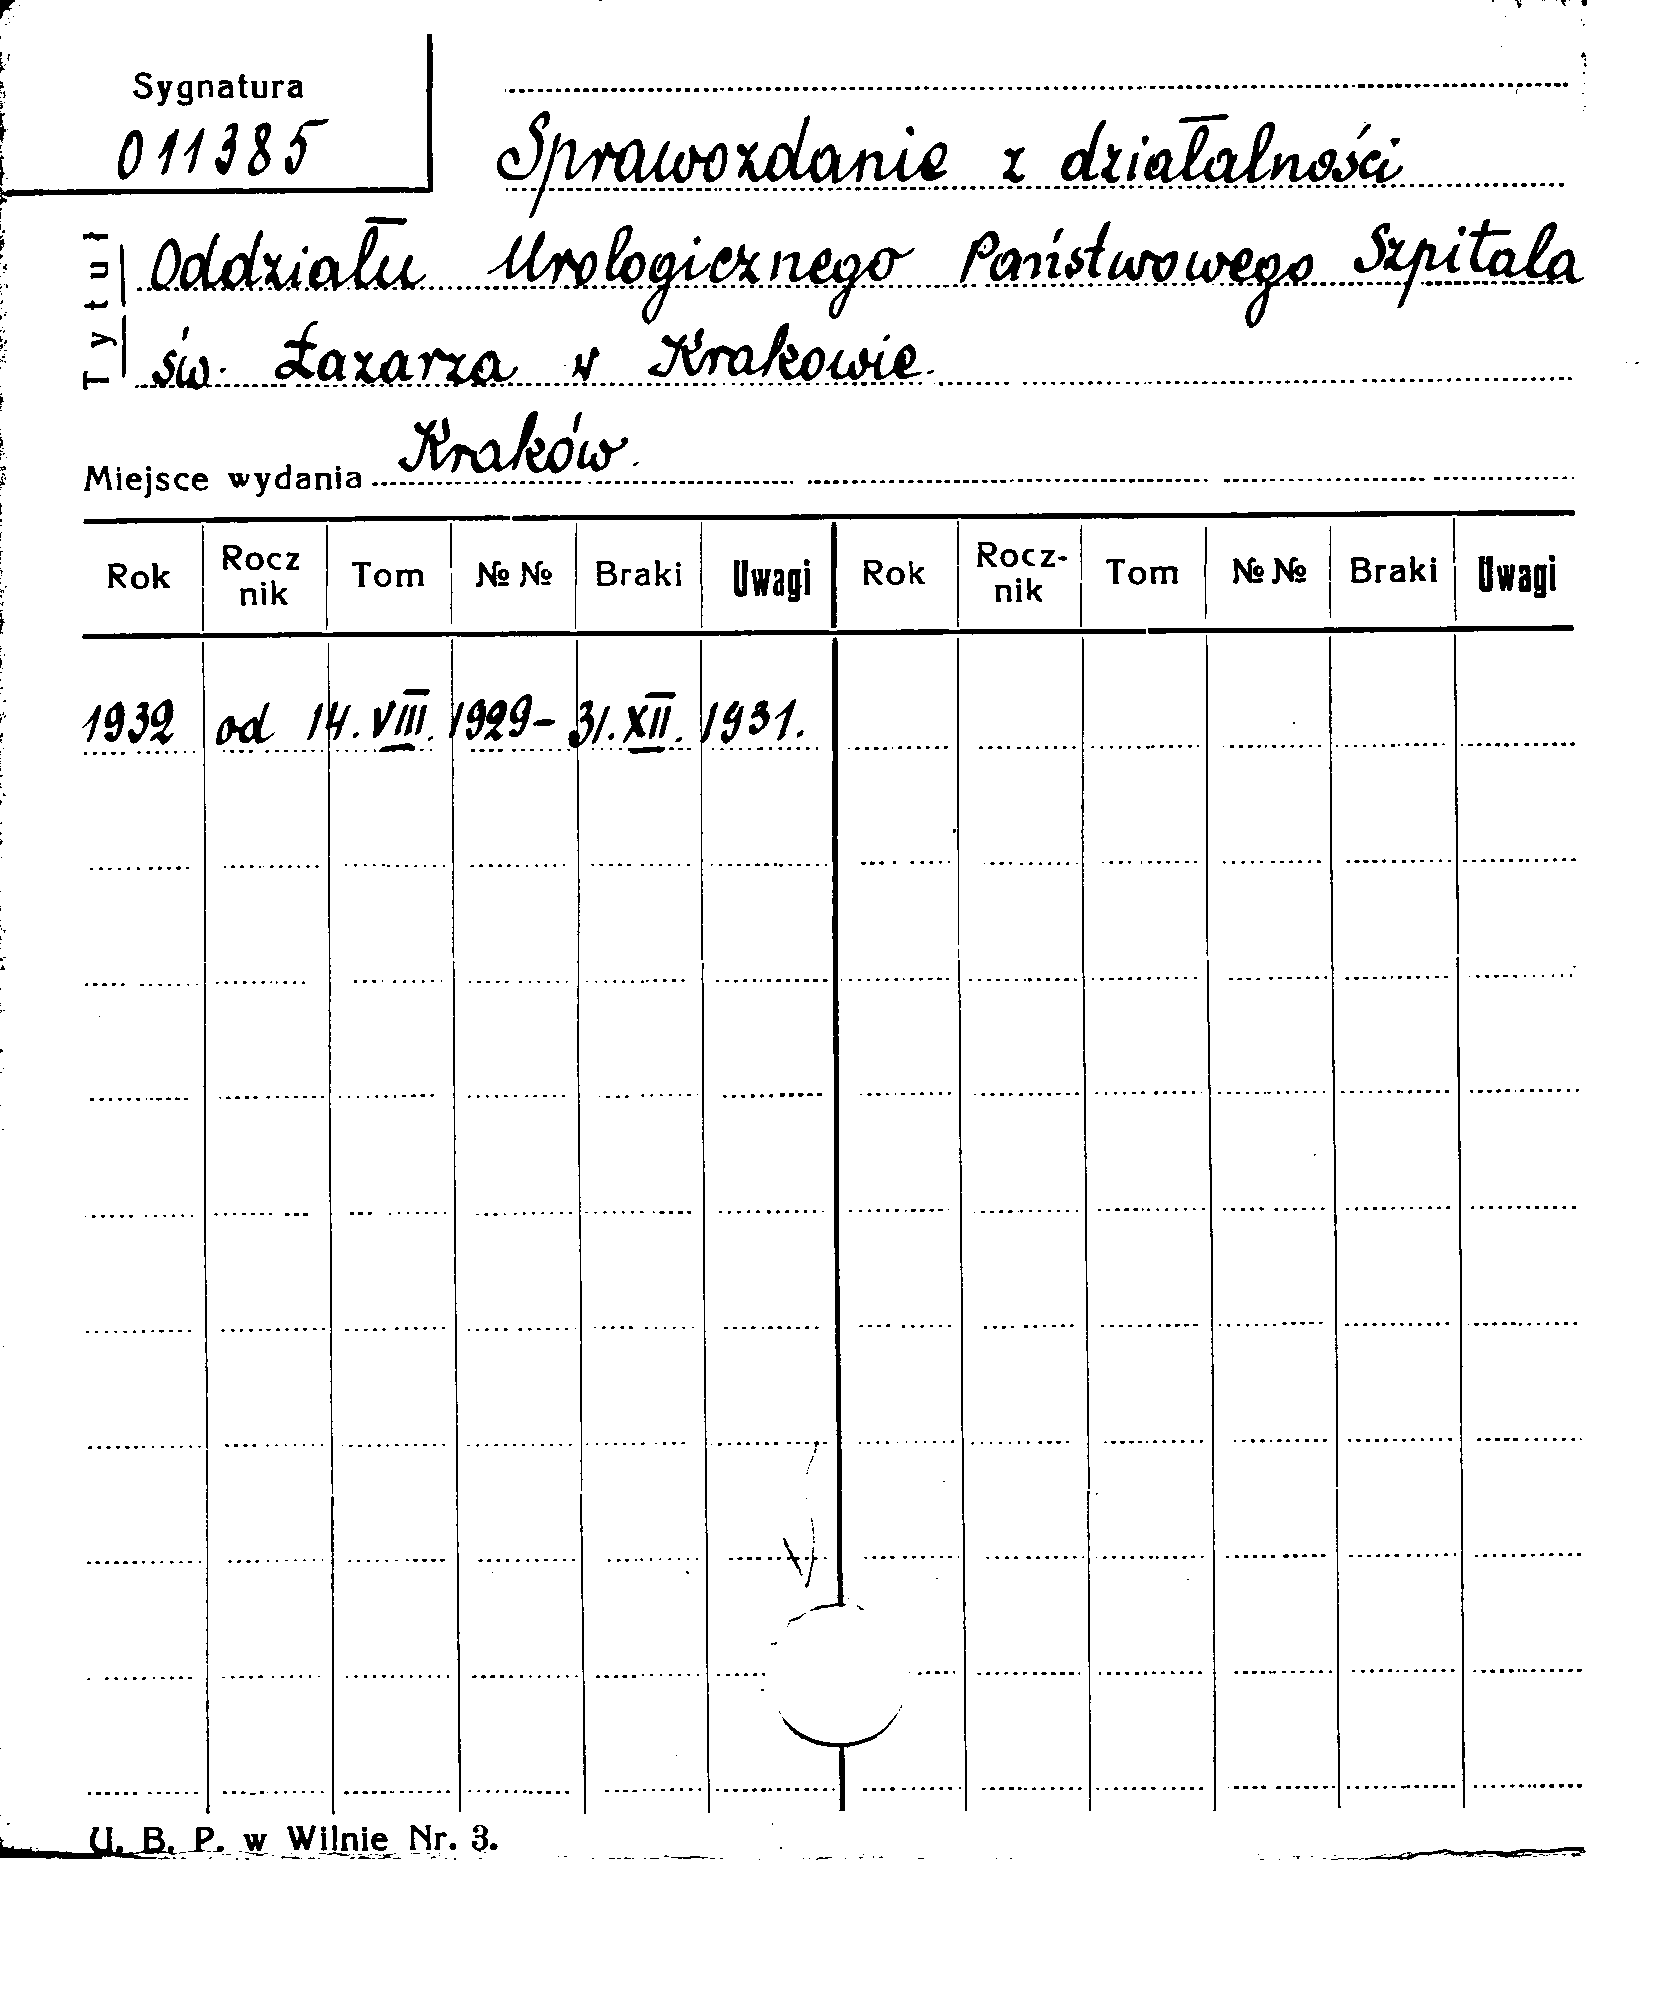 Sygnatura
011385
Sprawozdanie z działalności
Tytuł
Oddziału Urologicznego Państwowego Szpitala
św. Łazarza w Krakowie.
Miejsce wydania Kraków.
Rok Rocz nik Tom №№ Braki Uwagi Rok Rocz- nik Tom №№ Braki Uwagi
1932 od 14. VIII. 1929 - 31. XII. 1931.
U. B. P. w Wilnie Nr. 3.